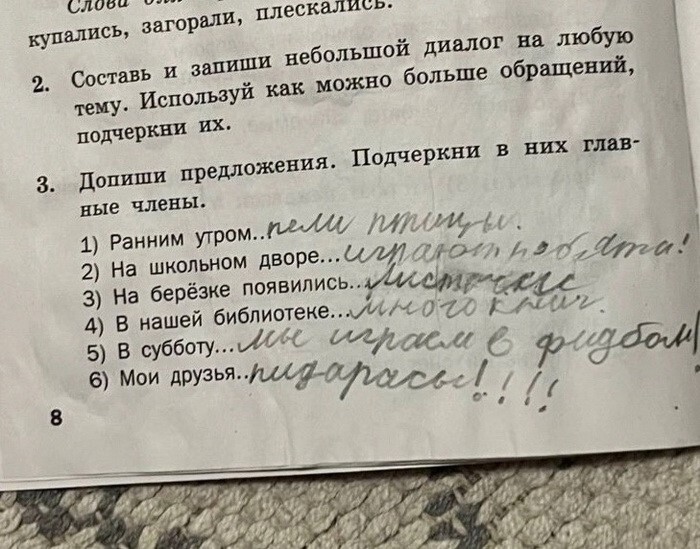 Слова для
купались, загорали, плескались.
2. Составь и запиши небольшой диалог на любую
тему. Используй как можно больше обращений,
подчеркни их.
3. Допиши предложения. Подчеркни в них глав-
ные члены.
1) Ранним утром..пели птицы.
2) На школьном дворе...играют ребята!
3) На берёзке появились...листочки
4) В нашей библиотеке...много книг.
5) В субботу...мы играем в фидбом!
6) Мои друзья..пидарасы!!!!!
8